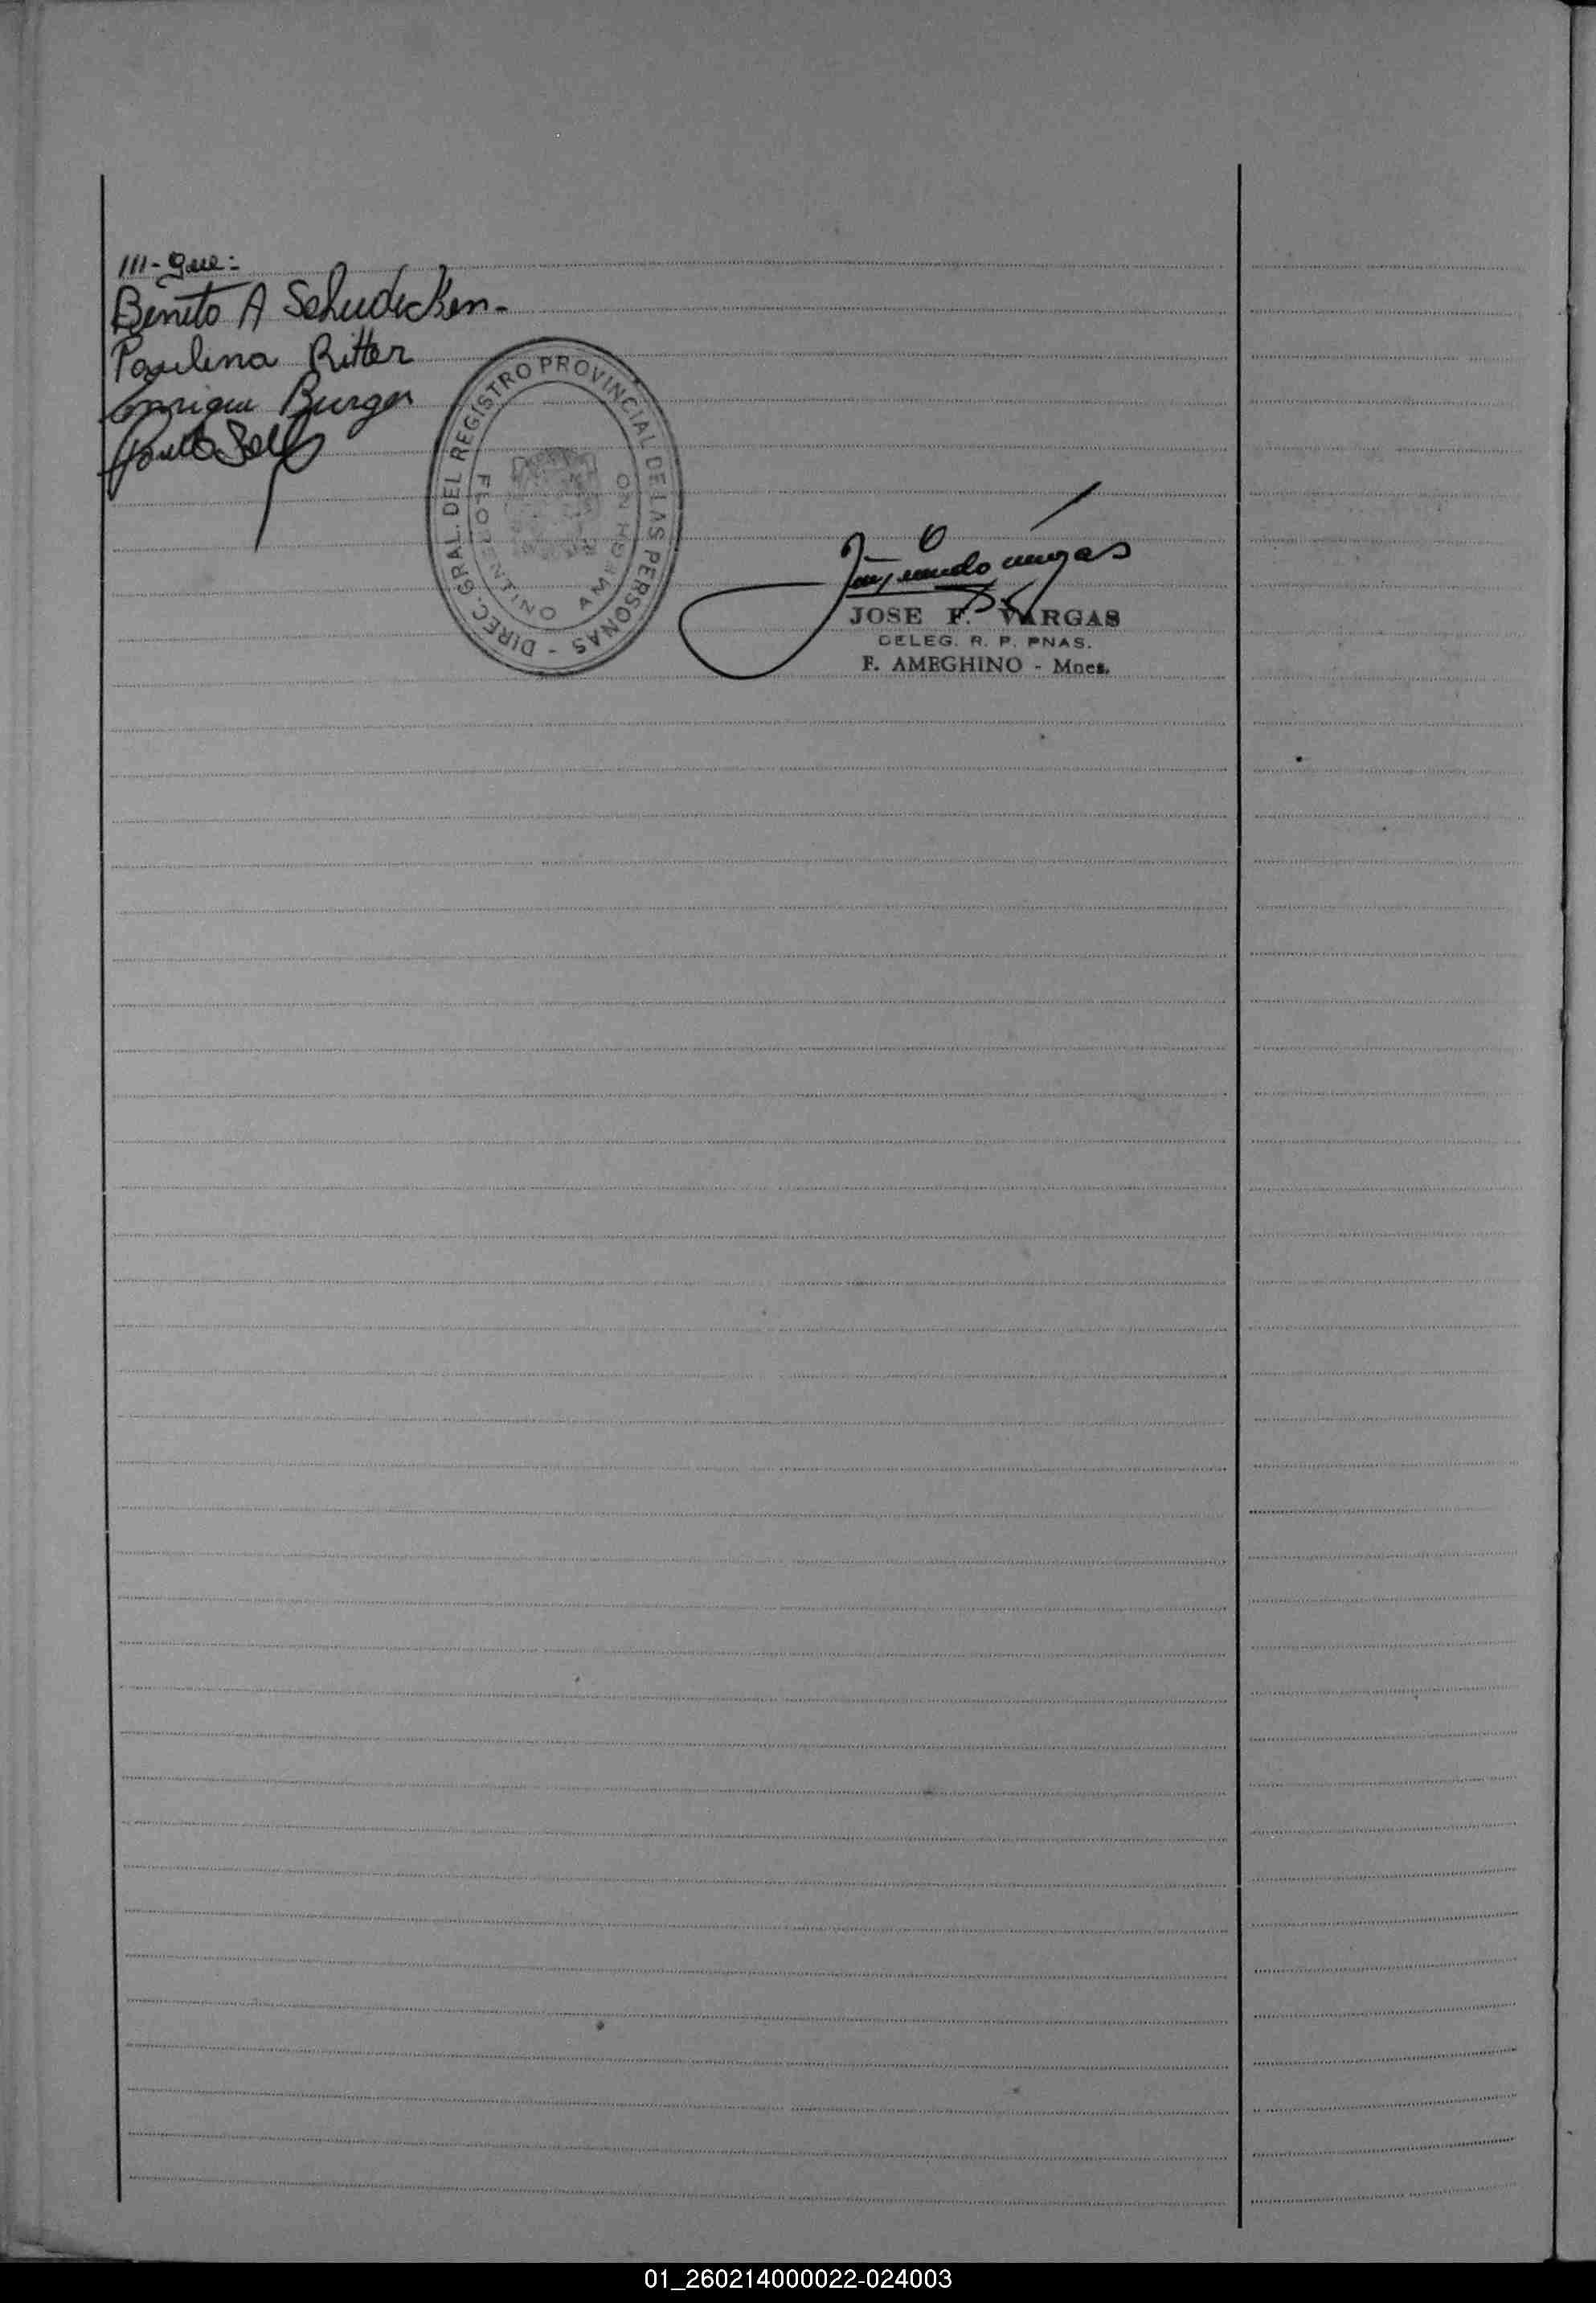 III - gue:
Benito A Schudicken-
Paulina Ritter
Enrique Burger
DIREC. GRAL. DEL REGISTRO PROVINCIAL DE LAS PERSONAS -
FLORENTINO AMEGHINO
JOSE F. VARGAS
DELEG. R. P. PNAS.
F. AMEGHINO - Mnes.
01_260214000022-024003